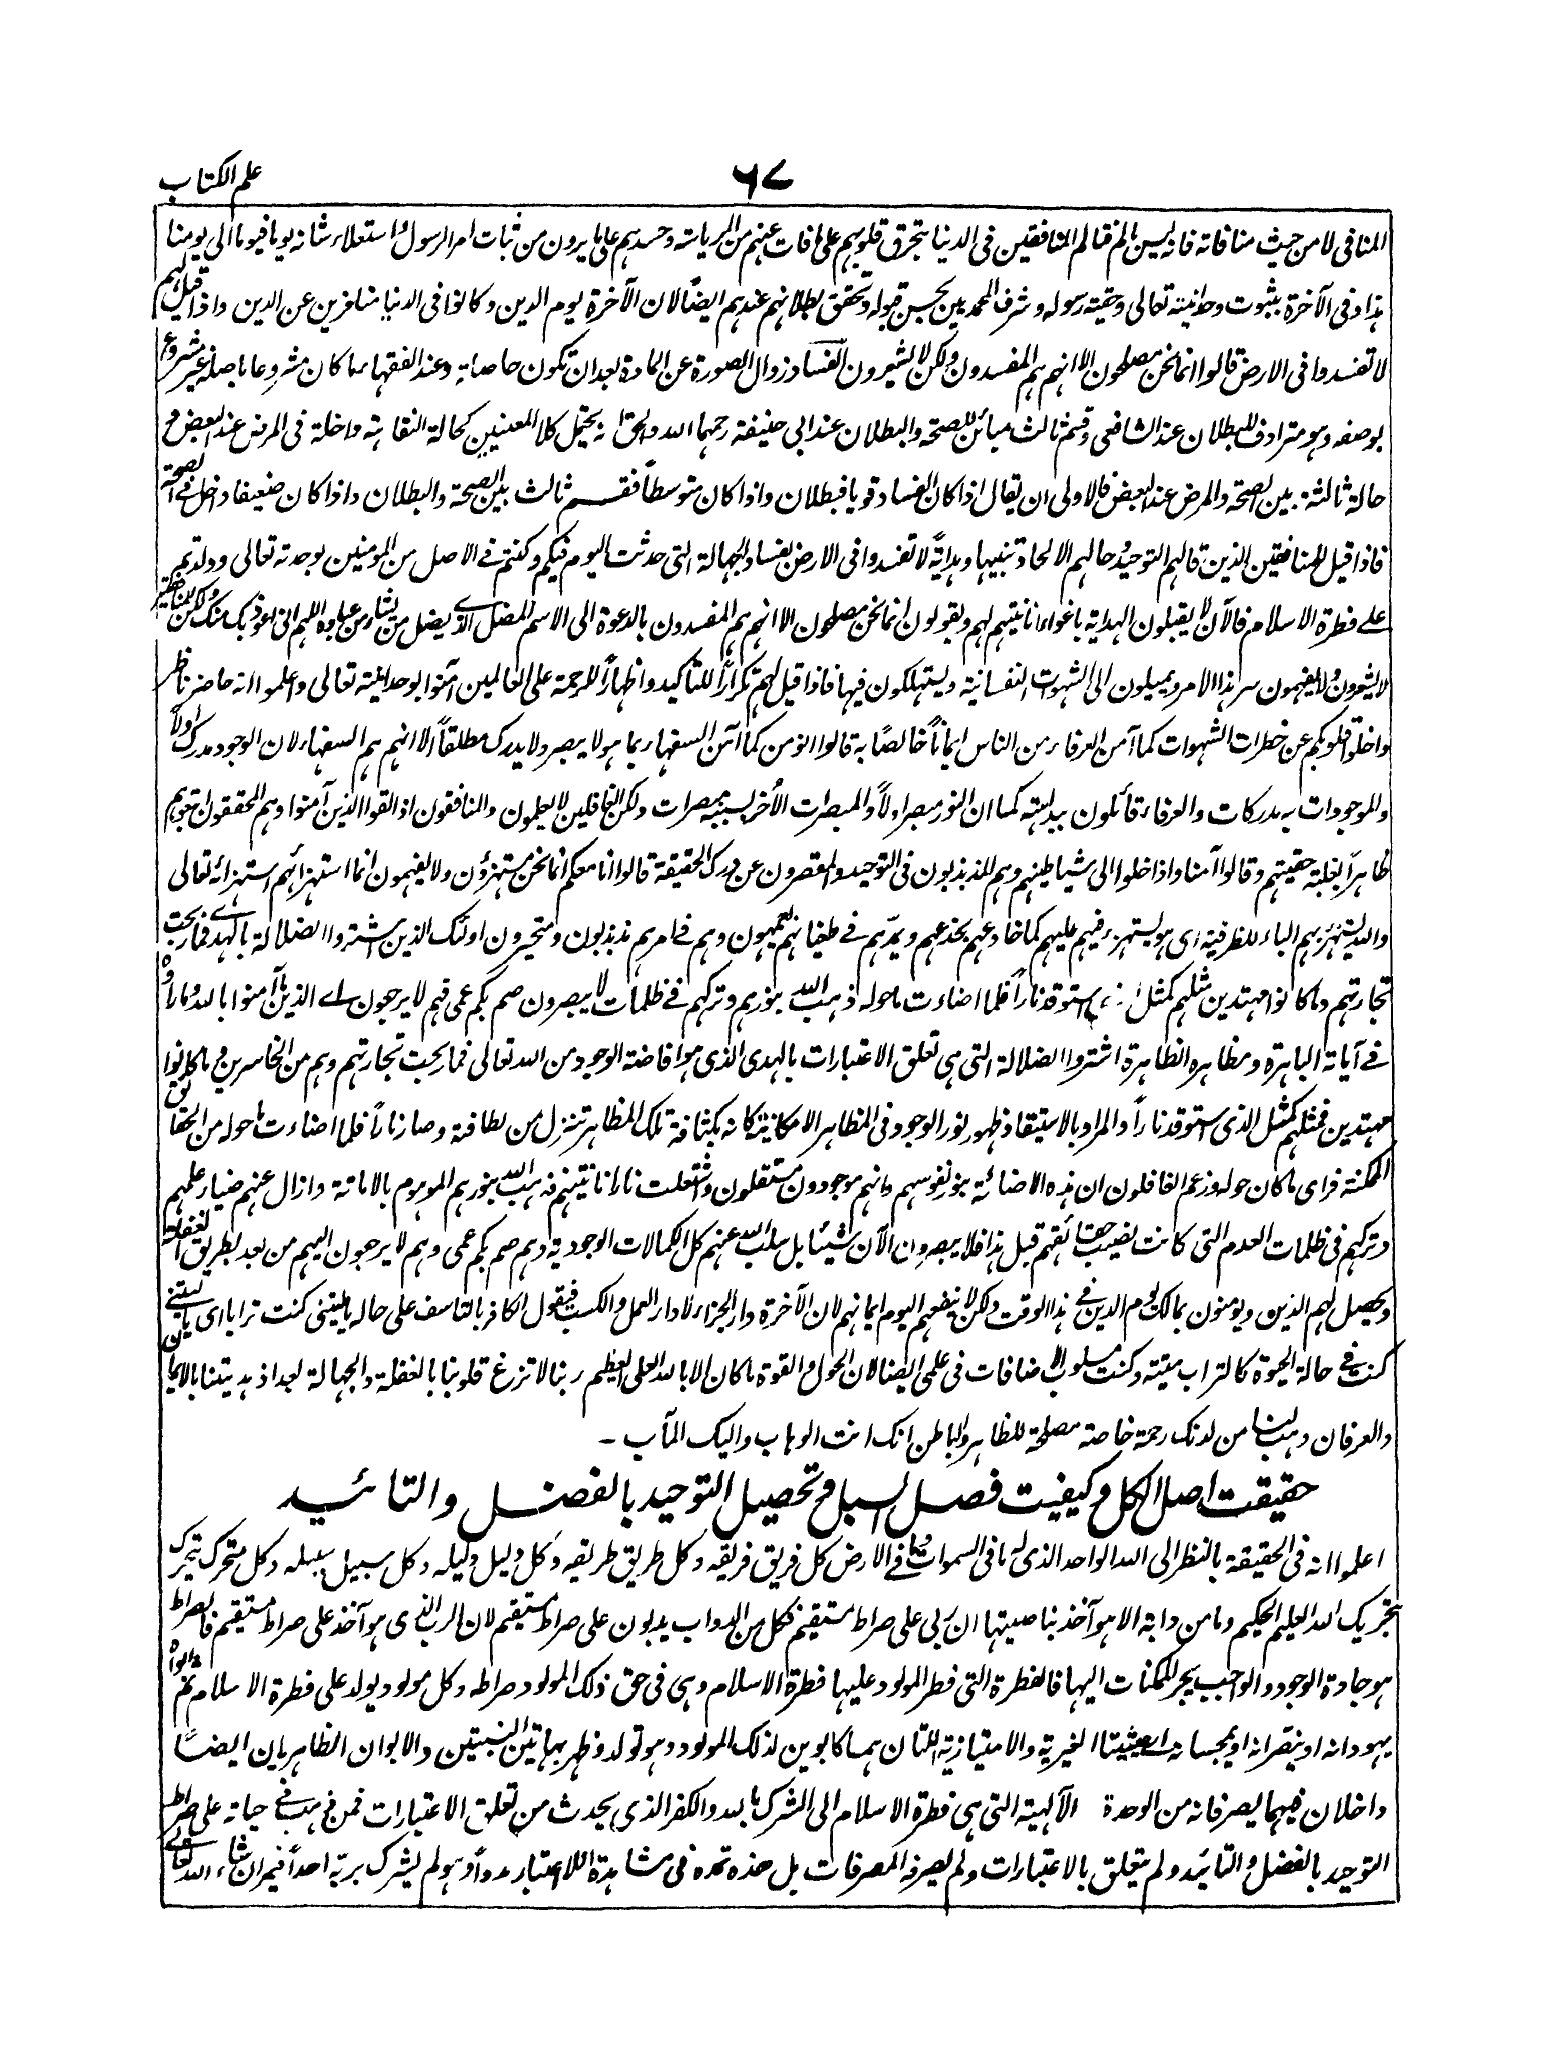 علم الكتاب
٦٧
المنافى لا من حيث منافاته فانه ليس بالم فتالم المنافقين فى الدنيا بتحرق قلوبهم على ما فات عنهم من الرياسة وحسدهم على ما يرون من ثبات امر الرسول واستعلاء شانه يوما فيوما الى يومنا
هذا وفى الآخرة بثبوت وحدانيته تعالى وحقية رسوله وشرف المحمديين بحسن قبوله وتحقق بطلانهم عندهم ايضًا لان الآخرة يوم الدين وكانوا فى الدنيا متنافرين عن الدين واذا قيل لهم
لا تفسدوا فى الارض قالوا انما نحن مصلحون الا انهم هم المفسدون ولكن لا يشعرون الفساد زوال الصورة عن المادة بعد ان تكون حاصلة وعند الفقهاء ما كان مشروعا باصله غير مشروع
بوصفه وهو مترادف للبطلان عند الشافعى وقسم ثالث مبائن للصحة والبطلان عند ابى حنيفة رحمهما الله والحق انه يحتمل كلا المعنيين كحالة النقاهة داخلة فى المرض عند البعض و
حالة ثالثة بين الصحة والمرض عند البعض فالاولى ان يقال اذا كان الفساد قويا فبطلان واذا كان متوسطًا فقسم ثالث بين الصحة والبطلان واذا كان ضعيفا دخل فى الصحة
فاذا قيل للمنافقين الذين قالهم التوحيد وحالهم الالحاد تنبيها وهدايةً لا تفسدوا فى الارض بفساد الجهالة التى حدثت اليوم فيكم وكنتم فى الاصل من المومنين بوحدته تعالى وولدتم
على فطرة الاسلام فالآن لا يقبلون الهداية باغواء انانيتهم لهم ويقولون انما نحن مصلحون الا انهم هم المفسدون بالدعوة الى الاسم المضل الذى يضل من يشاء من عباده اللهم انى اعوذ بك منك ولكن
لا يشعرون ولا يفهمون سر هذا الامر ويميلون الى الشهوات النفسانية ويستهلكون فيها فاذا قيل لهم تكرارًا للتاكيد واظهارًا للرحمة على العالمين آمنوا بوحدانيته تعالى واعلموا انه حاضر ناظر
واخلوا قلوبكم عن خطرات الشهوات كما آمن العرفاء من الناس ايمانًا خالصًا به قالوا انؤمن كما آمن السفهاء بما هو لا يبصر ولا يدرك مطلقًا الا انهم هم السفهاء لان الوجود مدرك اولًا
والموجودات به مدركات والعرفاء قائلون ببداهته كما ان النور مبصر اولًا والمبصرات الأخر بسببه مبصرات ولكن الغافلين لا يعلمون والمنافقون اذا لقوا الذين آمنوا وهم المحققون توجهم
ظاهرًا بغلبة حقيتهم وقالوا آمنا واذا خلوا الى شياطينهم وهم المذبذبون فى التوحيد والمقصرون عن درك الحقيقة قالوا انا معكم انما نحن مستهزؤن ولا يفهمون انما استهزائهم استهزائه تعالى
والله يستهزئ بهم الباء للظرفية اى هو يستهزء فيهم عليهم كما خادعهم بخدعهم ويمدهم فى طغيانهم يعمهون وهم فى امرهم مذبذبون ومتحيرون اولئك الذين اشتروا الضلالة بالهدى فما ربحت
تجارتهم وما كانوا مهتدين مثلهم كمثل الذى استوقد نارًا فلما اضاءت ما حوله ذهب الله بنورهم وتركهم فى ظلمات لا يبصرون صم بكم عمى فهم لا يرجعون اى الذين ما آمنوا بالله وما رأوه
فى آياته الباهرة ومظاهره الظاهرة اشتروا الضلالة التى هى تعلق الاعتبارات بالهدى الذى هو افاضة الوجود من الله تعالى فما ربحت تجارتهم وهم من الخاسرين وما كانوا
مهتدين فمثلهم كمثل الذى استوقد نارًا والمراد بالاستيقاد ظهور نور الوجود فى المظاهر الامكانية كانه بكثافة تلك المظاهر تنزل من لطافته وصار نارًا فلما اضاءت ما حوله من الحقائق
الممكنة فراى ما كان حوله وزعم الغافلون ان هذه الاضائة بنور نفوسهم وانهم موجودون مستقلون واشتعلت نار انانيتهم ذهب الله بنورهم الموهوم بالاماتة وازال عنهم ضياء علمهم
وتركهم فى ظلمات العدم التى كانت نصيب حقائقهم قبل هذا فلا يبصرون الآن شيئا بل سلب الله عنهم كل الكمالات الوجودية وهم صم بكم عمى وهم لا يرجعون اليهم من بعد بطريق الغفلة
ويحصل لهم الدين ويومنون بمالك يوم الدين فى هذا الوقت ولكن لا ينفعهم اليوم ايمانهم لان الآخرة دار الجزاء لا دار العمل والكسب فيقول الكافر بالتاسف على حاله يا ليتنى كنت ترابا اى يا ليتنى
كنت فى حالة الحيوة كالتراب ميتة وكنت مسلوب الاضافات فى علمى ايضا لان الحول والقوة ما كان الا بالله العلى العظيم ربنا لا تزغ قلوبنا بالغفلة والجهالة بعد اذ هديتنا بالايمان
والعرفان وهب لنا من لدنك رحمة خاصة مصلحة للظاهر والباطن انك انت الوهاب واليك المآب ۔
حقيقت اصل الكل وكيفيت فصل السبل وتحصيل التوحيد بالفضل والتائيد
اعلموا انه فى الحقيقة بالنظر الى الله الواحد الذى له ما فى السموات وما فى الارض كل فريق فريقه وكل طريق طريقه وكل دليل دليله وكل سبيل سبيله وكل متحرك يتحرك
بتحريك الله العليم الحكيم وما من دابة الا هو آخذ بناصيتها ان ربى على صراط مستقيم فكل من الدواب يدبون على صراط مستقيم لان الرب الذى هو آخذ على صراط مستقيم فالصراط
هو جادة الوجود والواجب يجر الممكنات اليها فالفطرة التى فطر المولود عليها فطرة الاسلام وهى فى حق ذلك المولود صراطه وكل مولود يولد على فطرة الاسلام ثم ابواه
يهودانه او ينصرانه او يمجسانه اى حيثيتا الغيرية والامتيازية اللتان هما كابوين لذلك المولود وهو تولد وظهر بهاتين النسبتين والابوان الظاهريان ايضًا
داخلان فيهما يصرفانه من الوحدة الآلهية التى هى فطرة الاسلام الى الشرك بالله والكفر الذى يحدث من تعلق الاعتبارات فمن ذهب فى حياته على صراط
التوحيد بالفضل والتائيد ولم يتعلق بالاعتبارات ولم يصرفه المصرفات بل هذه تمده فى مشاهدة اللا اعتبار مددًا وهو لم يشرك بربه احدًا فيمر ان شاء الله تعالى